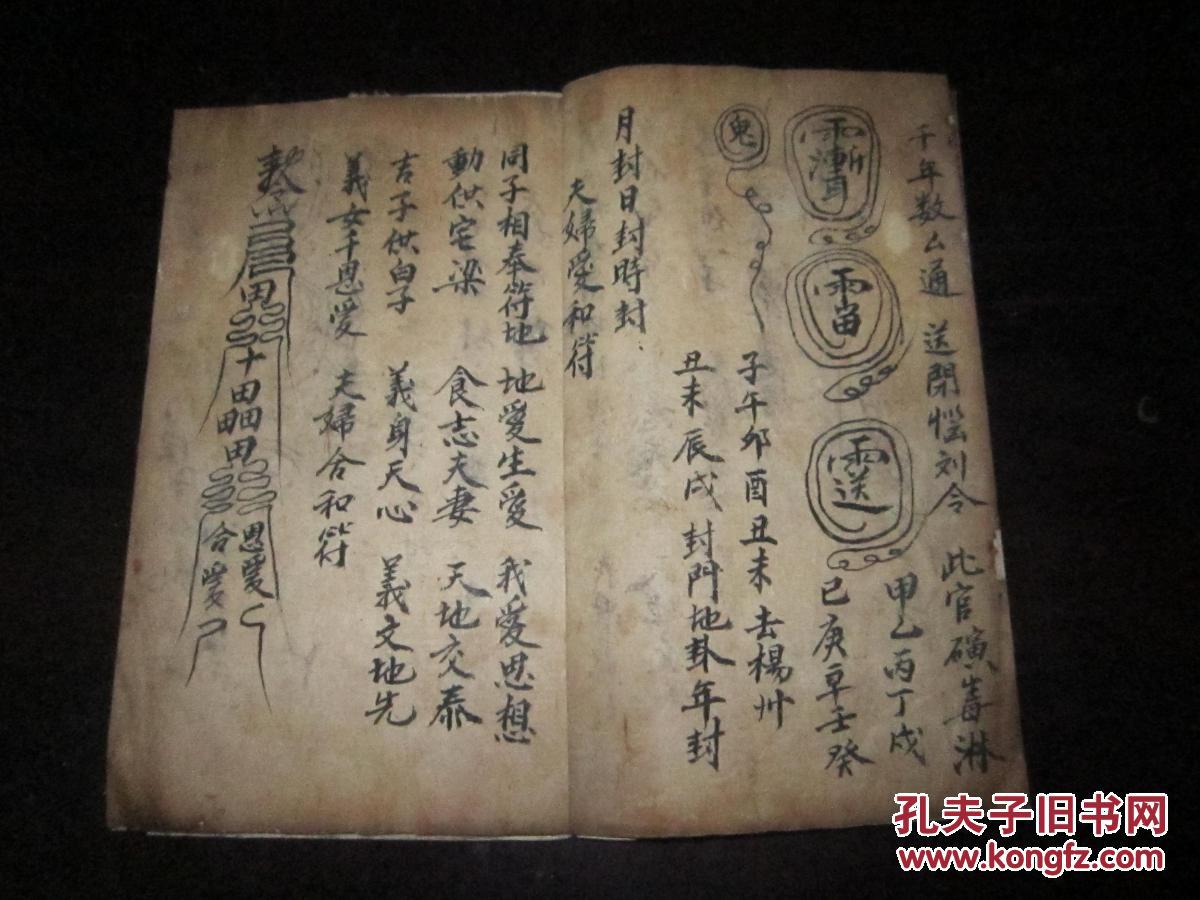 千年数厶通 送閉惱刘令 此官礦毒淋
甲乙丙丁戊
己庚辛壬癸
鬼
子午卯酉丑未去楊州
丑未辰戌封門地卦年封
月封日封時封
夫婦愛和符
同子相奉符地 地愛生愛 我愛思想
動供宅梁 食志夫妻 天地交泰
吉子供白子 義身天心 義文地先
義女千恩愛 夫婦合和符
田
十田
田
恩愛
合愛
孔夫子旧书网
www.kongfz.com